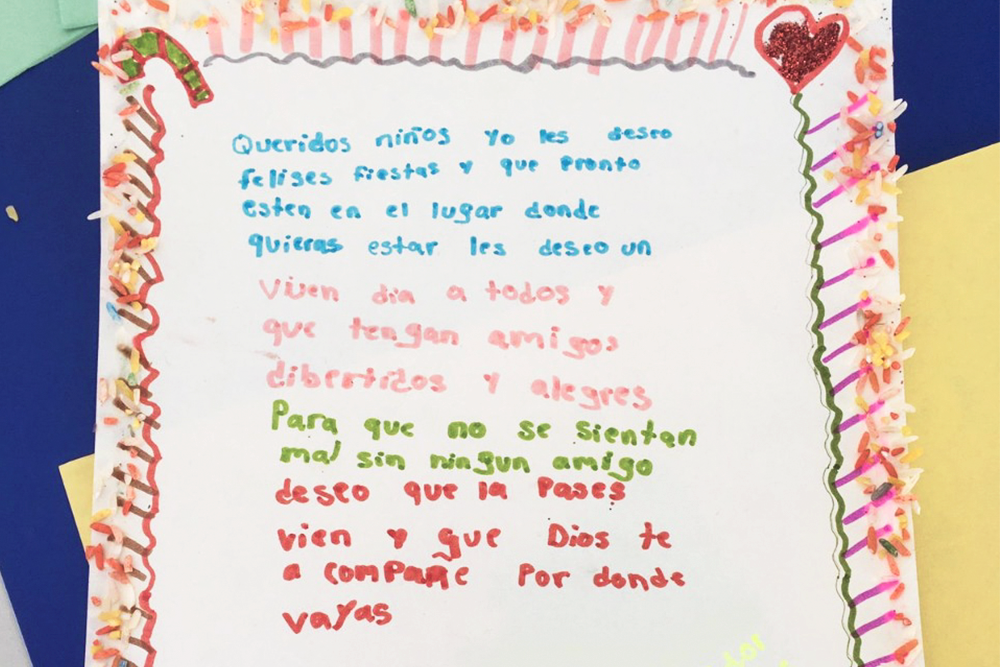 Queridos niños yo les deseo
felises fiestas y que pronto
esten en el lugar donde
quieras estar les deseo un
vien dia a todos y
que tengan amigos
dibertidos y alegres
Para que no se sientan
mal sin ningun amigo
deseo que la Pases
vien y que Dios te
a compañe Por donde
vayas